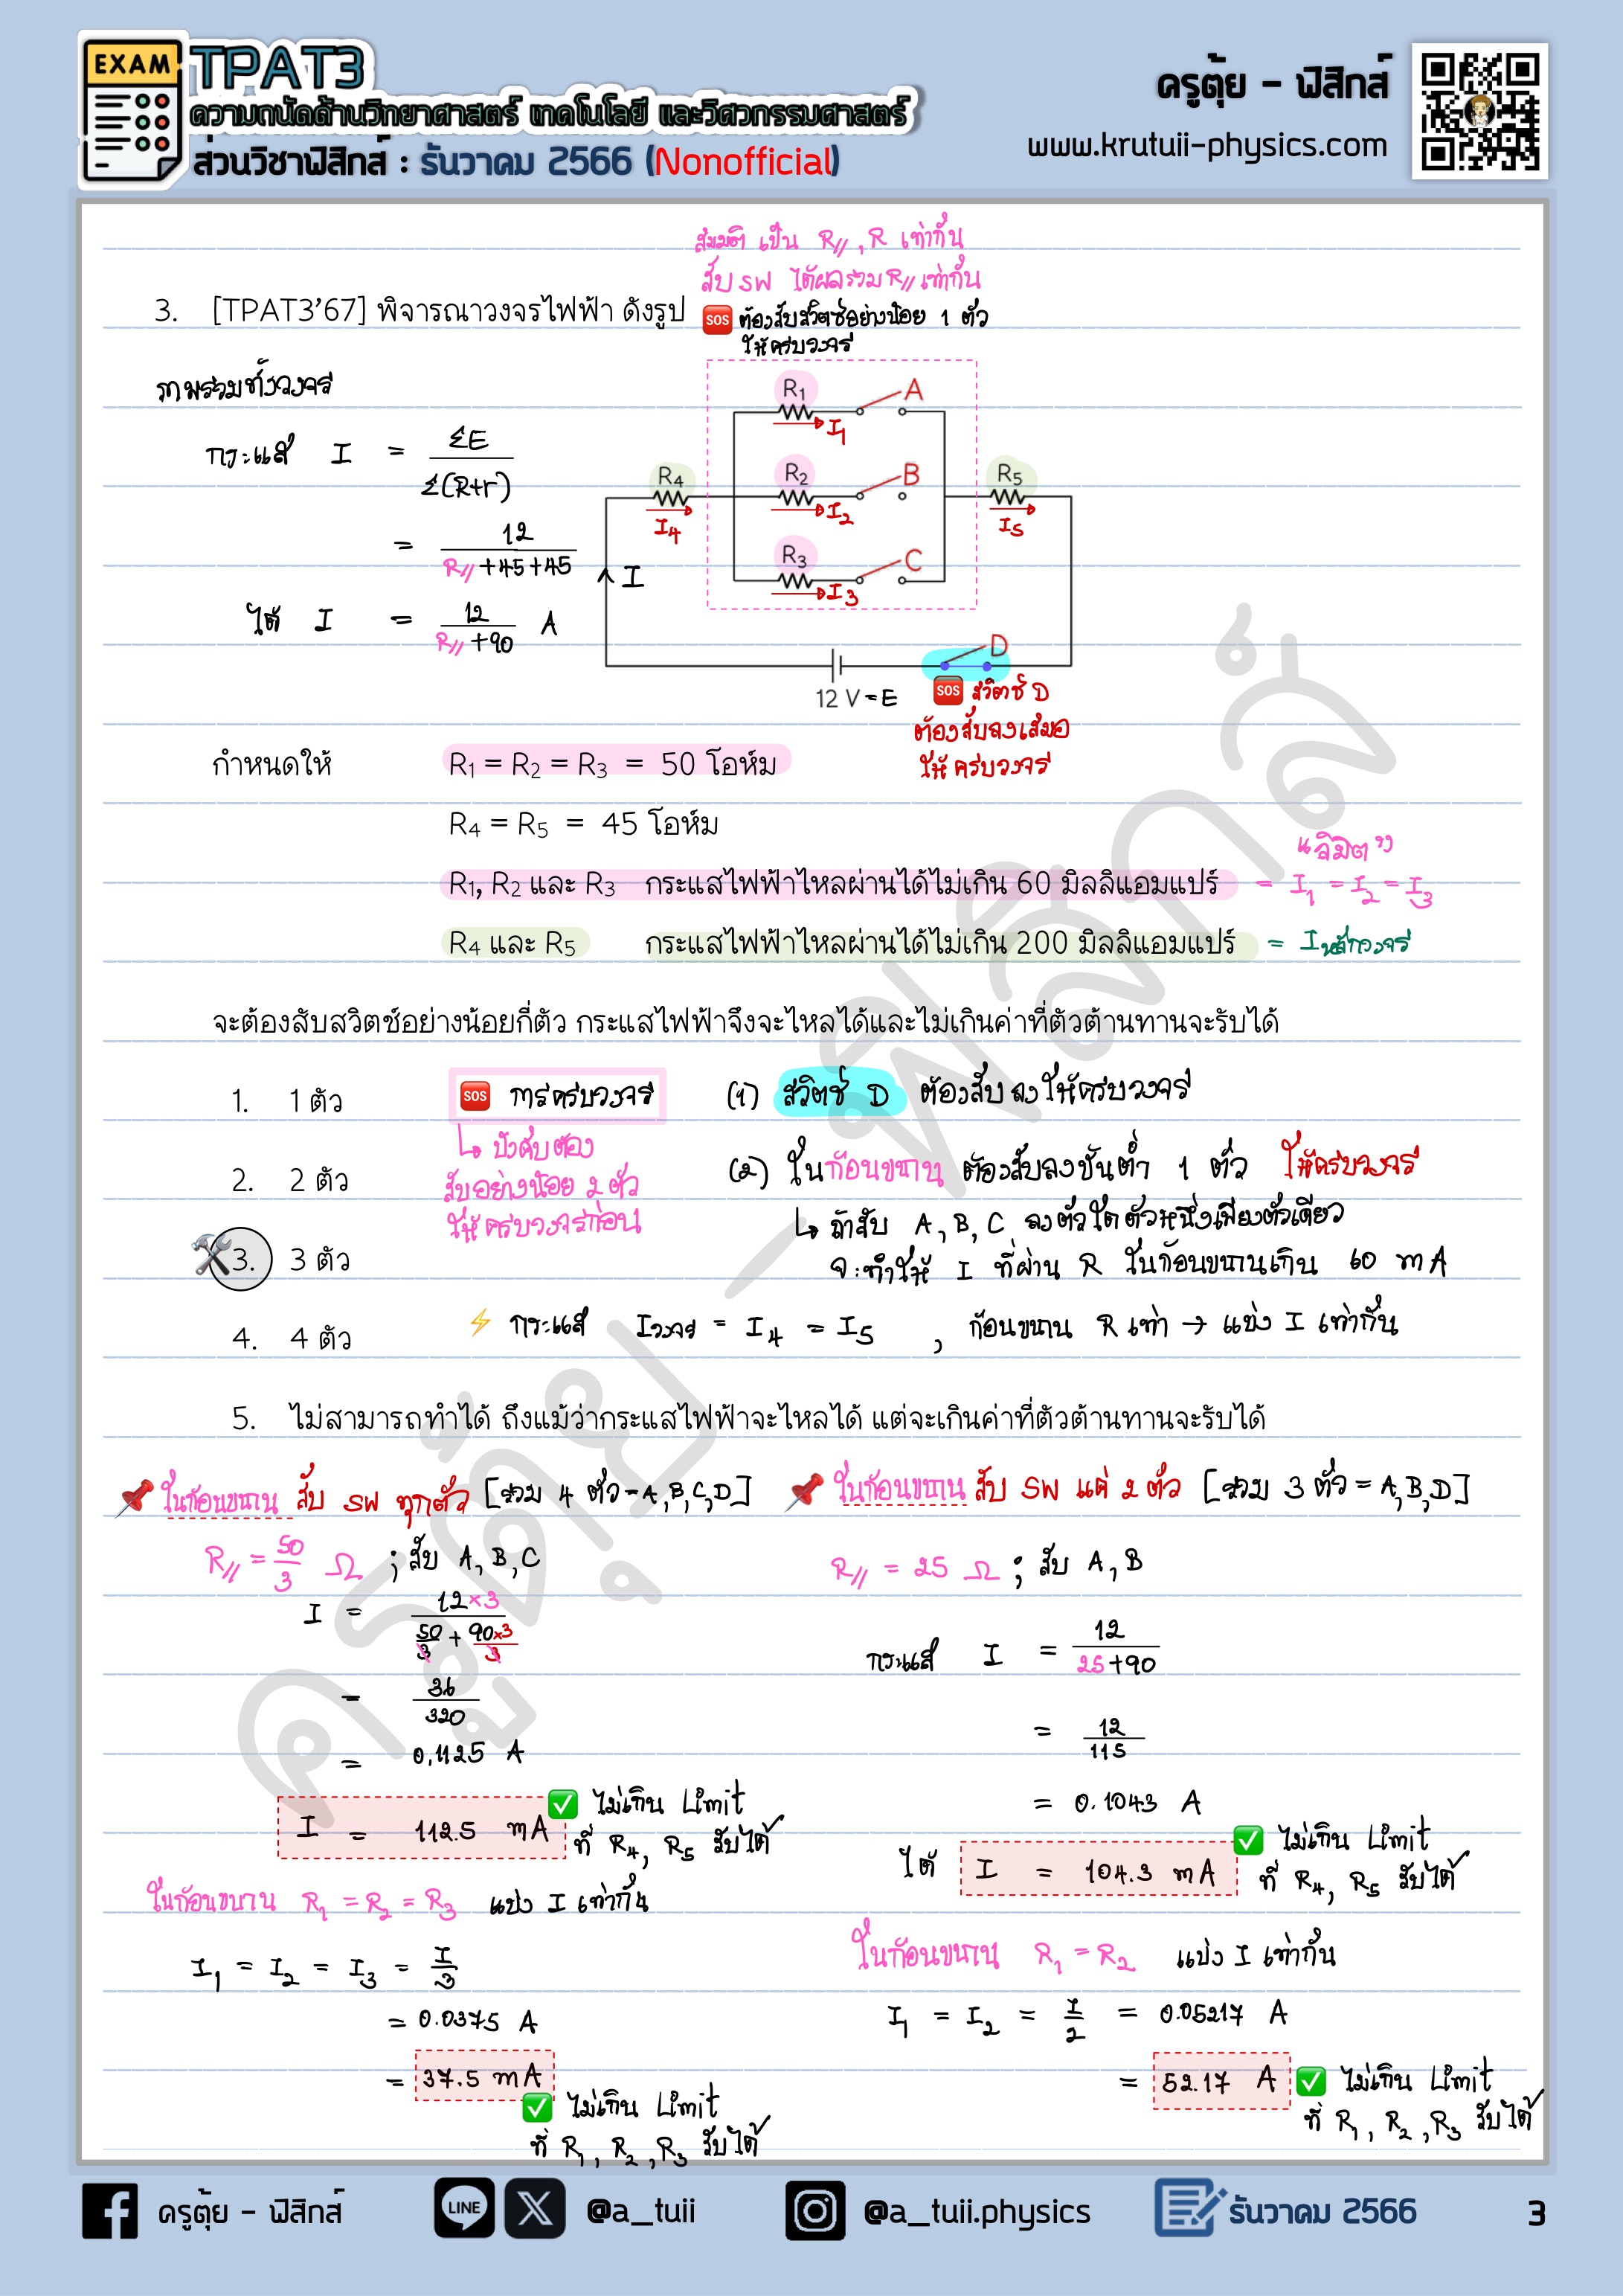 EXAM
TPAT3
ความถนัดด้านวิทยาศาสตร์ เทคโนโลยี และวิศวกรรมศาสตร์
ส่วนวิชาฟิสิกส์ : ธันวาคม 2566 (Nonofficial)
ครูตุ้ย - ฟิสิกส์
www.krutuii-physics.com
สมมติ เป็น R//, R เท่ากัน
สับ SW ได้ผลรวม R// เท่ากัน
3. [TPAT3'67] พิจารณาวงจรไฟฟ้า ดังรูป
SOS ต้องสับสวิตช์อย่างน้อย 1 ตัว
ให้ครบวงจร
ภาพรวมทั้งวงจร
กระแส I = ΣE / Σ(R+r)
= 12 / R// +45+45
ได้ I = 12 / R// +90 A
R1 A
I1
R4 R2 B R5
I4 I2 I5
R3 C
I3
I
D
12 V = E
SOS สวิตช์ D
ต้องสับลงเสมอ
ให้ครบวงจร
กำหนดให้ R1 = R2 = R3 = 50 โอห์ม
R4 = R5 = 45 โอห์ม
"ลิมิต"
R1, R2 และ R3 กระแสไฟฟ้าไหลผ่านได้ไม่เกิน 60 มิลลิแอมแปร์ = I1 = I2 = I3
R4 และ R5 กระแสไฟฟ้าไหลผ่านได้ไม่เกิน 200 มิลลิแอมแปร์ = Iหลักวงจร
จะต้องสับสวิตช์อย่างน้อยกี่ตัว กระแสไฟฟ้าจึงจะไหลได้และไม่เกินค่าที่ตัวต้านทานจะรับได้
1. 1 ตัว
SOS การครบวงจร
(1) สวิตช์ D ต้องสับลงให้ครบวงจร
บังคับต้อง
2. 2 ตัว
สับอย่างน้อย 2 ตัว
ให้ครบวงจรก่อน
(2) ในก้อนขนาน ต้องสับลงขั้นต่ำ 1 ตัว ให้ครบวงจร
ถ้าสับ A, B, C ลงตัวใดตัวหนึ่งเพียงตัวเดียว
3. 3 ตัว
จะทำให้ I ที่ผ่าน R ในก้อนขนานเกิน 60 mA
4. 4 ตัว
กระแส Iวงจร = I4 = I5 , ก้อนขนาน R เท่า → แบ่ง I เท่ากัน
5. ไม่สามารถทำได้ ถึงแม้ว่ากระแสไฟฟ้าจะไหลได้ แต่จะเกินค่าที่ตัวต้านทานจะรับได้
ในก้อนขนาน สับ SW ทุกตัว [รวม 4 ตัว - A, B, C, D]
R// = 50/3 Ω ; สับ A, B, C
I = 12×3 / 50/3 + 90×3/3
= 36 / 320
= 0.1125 A
I = 112.5 mA
ไม่เกิน Limit
ที่ R4, R5 รับได้
ในก้อนขนาน R1 = R2 = R3 แบ่ง I เท่ากัน
I1 = I2 = I3 = I/3
= 0.0375 A
= 37.5 mA
ไม่เกิน Limit
ที่ R1, R2, R3 รับได้
ในก้อนขนาน สับ SW แค่ 2 ตัว [รวม 3 ตัว = A, B, D]
R// = 25 Ω ; สับ A, B
กระแส I = 12 / 25 +90
= 12 / 115
= 0.1043 A
ได้ I = 104.3 mA
ไม่เกิน Limit
ที่ R4, R5 รับได้
ในก้อนขนาน R1 = R2 แบ่ง I เท่ากัน
I1 = I2 = I/2 = 0.05217 A
= 52.17 A
ไม่เกิน Limit
ที่ R1, R2, R3 รับได้
ครูตุ้ย - ฟิสิกส์
ครูตุ้ย - ฟิสิกส์
LINE
X
@a_tuii
@a_tuii.physics
ธันวาคม 2566
3